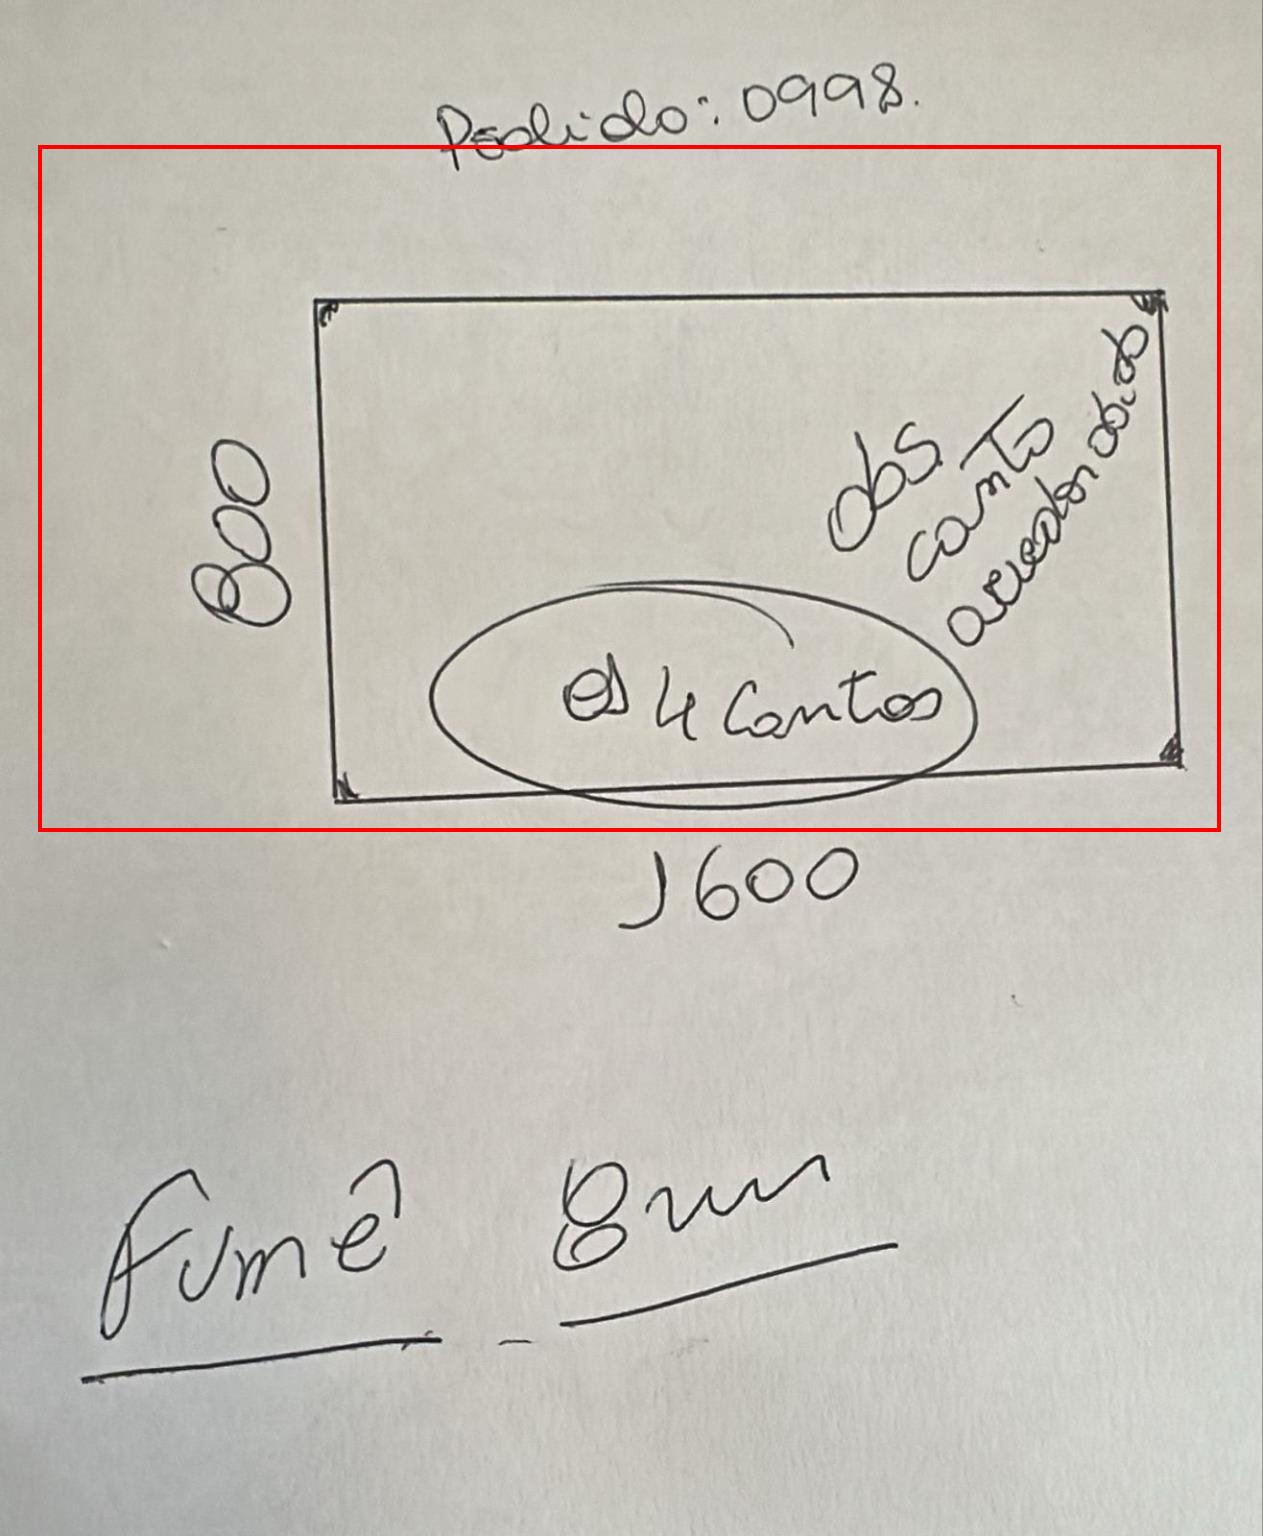 Pedido: 0998.
800
obs.
canto
arredondado
os 4 Cantos
1600
Fumê 8mm